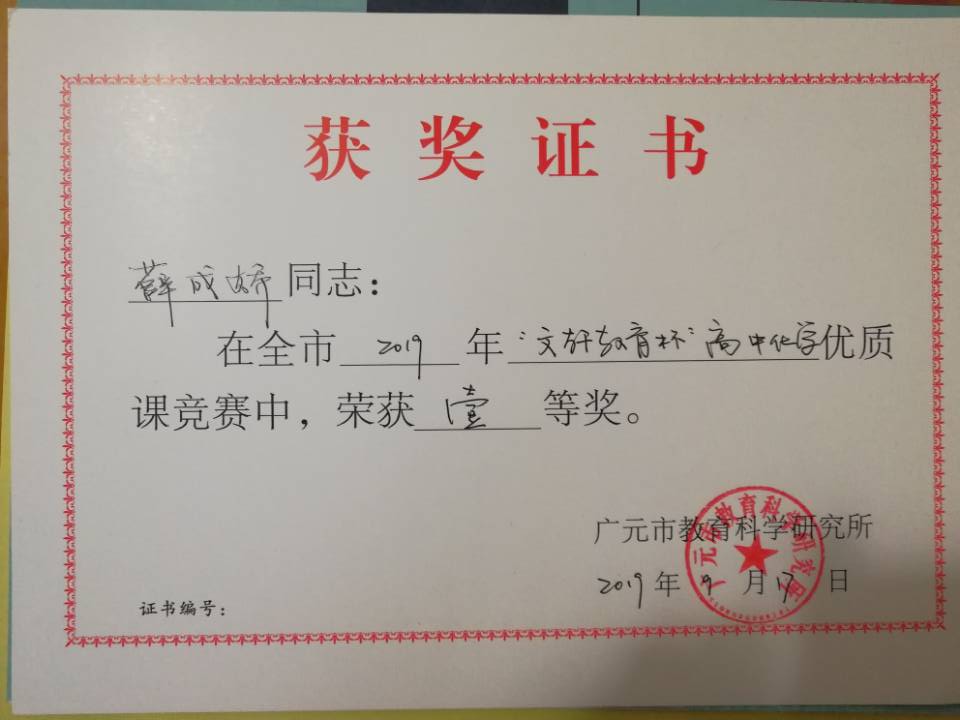 获奖证书
薛成娇同志：
在全市 2019 年“文轩教育杯”高中化学优质
课竞赛中，荣获 壹 等奖。
广元市教育科学研究所
2019 年 9 月 17 日
证书编号：
广元市教育科学研究所